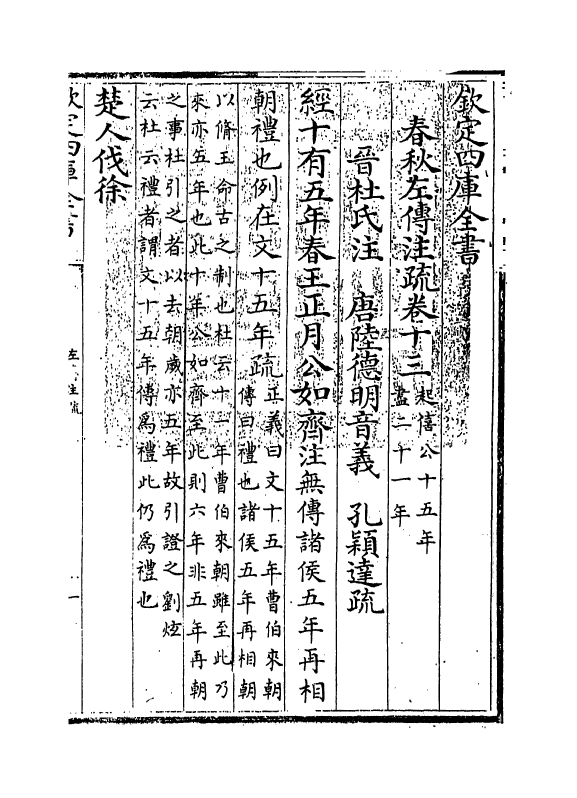 欽定四庫全書
春秋左傳注疏卷十三
起僖公十五年
盡二十一年
晉杜氏注　唐陸德明音義　孔穎達疏
經十有五年春王正月公如齊注無傳諸侯五年再相
朝禮也例在文十五年疏
正義曰文十五年曹伯來朝
傳曰禮也諸侯五年再相朝
以脩王命古之制也杜云十一年曹伯來朝雖至此乃
來亦五年也此十年公如齊至此則六年非五年再朝
之事杜引之者以去朝歲亦五年故引證之劉炫
云杜云禮者謂文十五年傳爲禮此仍爲禮也
楚人伐徐
欽定四庫全書